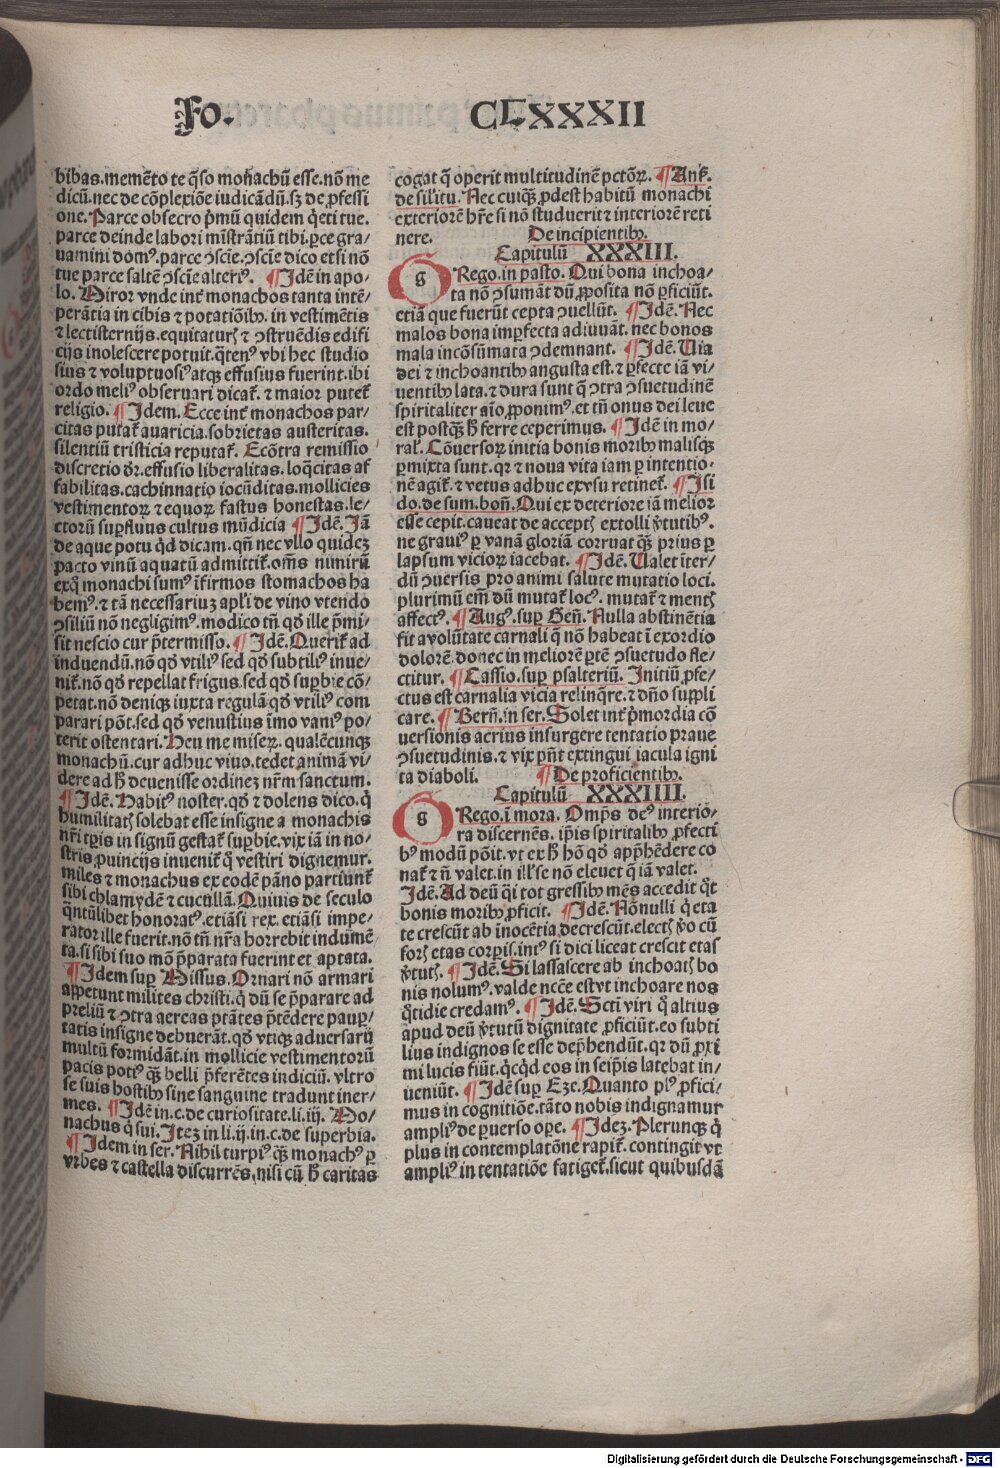 Fo. CLXXXII
bibas.memẽto te q̃so monachũ esse.nõ me
dicũ.nec de cõplexiõe iudicãdũ.sʒ de ꝓfessi
one.Parce obsecro p̃mũ quidem q̃eti tue.
parce deinde labori mĩstrãtiũ tibi.ꝑce gra/
uamini domꝰ.parce ꝯscĩe.ꝯscĩe dico et si nõ
tue parce saltẽ ꝯscĩe alteriꝰ. ¶Idẽ in apo-
lo. Miror vnde int̃ monachos tanta intẽ/
perãtia in cibis ⁊ potatiõibꝫ. in vestimẽtis
⁊ lectisternijs.equitaturꝭ ⁊ ꝯstruẽdis edifi
cijs inolescere potuit.q̃tenꝰ vbi hec studio
siꝰ ⁊ voluptuosiꝰ atqꝫ effusius fuerint.ibi
ordo meliꝰ obseruari dicat̃. ⁊ maior putet̃
religio. ¶Idem. Ecce int̃ monachos par/
citas putat̃ auaricia.sobrietas austeritas.
silentiũ tristicia reputat̃. Ecõtra remissio
discretio dr̃.effusio liberalitas.loq̃citas af
fabilitas.cachinnatio iocũditas.mollicies
vestimentoꝝ ⁊ equoꝝ fastus honestas.le/
ctorũ suꝑfluus cultus mũdicia ¶Idẽ. Iã
de aque potu qd̃ dicam.qñ nec vllo quideʒ
pacto vinũ aquatũ admittit̃.oẽs nimirũ
exq̃ monachi sumꝰ ĩfirmos stomachos ha
bemꝰ.⁊ tã necessariuʒ apl̃i de vino vtendo
ꝯsiliũ nõ negligimꝰ.modico tñ qd̃ ille p̃mi/
sit nescio cur p̃termisso. ¶Idẽ.Querit̃ ad
induendũ.nõ qd̃ vtiliꝰ sed qd̃ subtiliꝰ inue/
nit̃.nõ qd̃ repellat frigus.sed qd̃ suꝑbie cõ/
petat.nõ deniqꝫ iuxta regulã qd̃ vtiliꝰ com
parari põt.sed qd̃ venustius ĩmo vaniꝰ po/
terit ostentari.Heu me miseꝝ. qualẽcunqꝫ
monachũ.cur adhuc viuo.tedet animã vi/
dere ad h̃ deuenisse ordineʒ nr̃m sanctum.
¶Idẽ. Habitꝰ noster.qd̃ ⁊ dolens dico.q̃
humilitatꝭ solebat esse insigne a monachis
nr̃i tꝑis in signũ gestat̃ suꝑbie.vix iã in no/
stris ꝓuincijs inuenit̃ q̃ vestiri dignemur.
miles ⁊ monachus ex eodẽ pãno partiunt̃
sibi chlamydẽ ⁊ cucullã. Quiuis de seculo
q̃ntũlibet honoratꝰ.etiãsi rex.etiãsi impe/
rator ille fuerit.nõ tñ nr̃a horrebit indumẽ/
ta.si sibi suo mõ p̃parata fuerint et aptata.
¶Idem suꝑ Missus.Ornari nõ armari
appetunt milites christi.q̃ dũ se p̃parare ad
preliũ ⁊ ꝯtra aereas ptãtes p̃tẽdere pauꝑ/
tatis insigne debuerãt.qd̃ vtiqꝫ aduersarij
multũ formidãt.in mollicie vestimentorũ
pacis potiꝰ qꝫ belli p̃ferẽtes indiciũ. vltro
se suis hostibꝫ sine sanguine tradunt iner/
mes. ¶Idẽ in.c.de curiositate.li.iij. Mo/
nachus q̃ sui. Iteʒ in li.ij.in.c.de superbia.
¶Idem in ser. Nihil turpiꝰ qꝫ monachꝰ ꝑ
vrbes ⁊ castella discurrẽs.nisi cũ h̃ caritas
cogat q̃ operit multitudinẽ pctõꝝ. ¶Ans̃.
de sil'itu. Nec cuiqꝫ ꝓdest habitũ monachi
exteriorẽ hr̃e si nõ studuerit ⁊ interiorẽ reti
nere. De incipientibꝫ.
Capitulũ XXXIII.
GRego.in pasto. Qui bona inchoa/
ta nõ ꝯsumãt dũ ꝓposita nõ ꝑficiũt.
etiã que fuerũt cepta ꝯuellũt. ¶Idẽ. Nec
malos bona imꝑfecta adiuuãt. nec bonos
mala incõsũmata ꝯdemnant. ¶Idẽ. Uia
dei ⁊ inchoantibꝫ angusta est.⁊ ꝑfecte iã vi/
uentibꝫ lata.⁊ dura sunt q̃ ꝯtra ꝯsuetudinẽ
spiritaliter aĩo ꝓponimꝰ.et tñ onus dei leue
est postqꝫ h̃ ferre ceperimus. ¶Idẽ in mo/
ral'. Cõuersoꝝ initia bonis moribꝫ malisqꝫ
ꝑmixta sunt.qr ⁊ noua vita iam ꝑ intentio-
nẽ agit̃.⁊ vetus adhuc ex vsu retinet̃. ¶Isi
do.de sum.boñ. Qui ex deteriore iã melior
esse cepit.caueat de acceptꝭ extolli v̓tutibꝰ.
ne grauiꝰ ꝑ vanã gloriã corruat qꝫ prius ꝑ
lapsum vicioꝝ iacebat. ¶Idẽ. Ualet iter/
dũ ꝯuersis pro animi salute mutatio loci.
plurimũ em̃ dũ mutat̃ locꝰ. mutat̃ ⁊ mentꝭ
affectꝰ. ¶Augꝰ.suꝑ Geñ. Nulla abstinẽtia
fit a volũtate carnali q̃ nõ habeat ĩ exordio
dolorẽ.donec in meliorẽ ꝑtẽ ꝯsuetudo fle/
ctitur. ¶Cassio.suꝑ psalteriũ. Initiũ ꝓfe/
ctus est carnalia vicia relinq̃re.⁊ dño suppli
care. ¶Berñ.in ser. Solet int̃ p̃mordia cõ
uersionis acrius insurgere tentatio praue
ꝯsuetudinis.⁊ vix pñt extingui iacula igni
ta diaboli. ¶De proficientibꝫ.
Capitulũ XXXIIII.
GRego.ĩ mora. Omp̃s deꝰ interio/
ra discernẽs. ip̃is spiritalibꝫ ꝓfecti
bꝰ modũ põit.vt ex h̃ hõ qd̃ apprehẽdere co
nat̃ ⁊ ñ valet.in ill' se nõ eleuet q̃ iã valet.
Idẽ.Ad deũ q̃i tot gressibꝫ mẽs accedit q̃t
bonis moribꝫ ꝓficit. ¶Idẽ. Nõnulli q̃ eta
te crescũt ab inocẽtia decrescũt.electꝭ v̓o cũ
forꝭ etas corꝑis.intꝰ si dici liceat crescit etas
v̓tutꝭ. ¶Idẽ.Si lassascere ab inchoatꝭ bo
nis nolumꝰ.valde ncẽe est vt inchoare nos
q̃tidie credamꝰ. ¶Idẽ.Scti viri q̃ altius
apud deũ v̓tutũ dignitate ꝓficiũt.eo subti
lius indignos se esse dep̃hendũt.qr dũ ꝓxi
mi lucis fiũt.q̃cqd̃ eos in seip̃is latebat in/
ueniũt. ¶Idẽ suꝑ Eze.Quanto plꝰ ꝓfici/
mus in cognitiõe.tãto nobis indignamur
ampliꝰ de ꝑuerso oꝑe. ¶Ideʒ.Plerunqꝫ q̃
plus in contemplatõne rapit̃. contingit vt
ampliꝰ in tentatiõe fatiget̃.sicut quibusdã
Digitalisierung gefördert durch die Deutsche Forschungsgemeinschaft - DFG